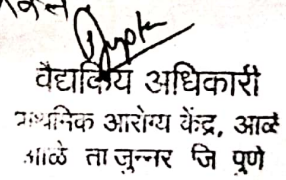 वैद्यकिय अधिकारी
प्राथमिक आरोग्य केंद्र, आळे
आळे ता जुन्नर जि पुणे